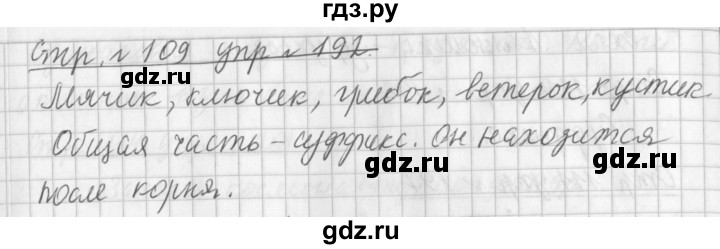 гдз.ру
Стр. № 109 упр № 192.
Мячик, ключик, грибок, ветерок, кустик.
Общая часть – суффикс. Он находится
gdz.ru gdz.ru
после корня.
gdz.ru